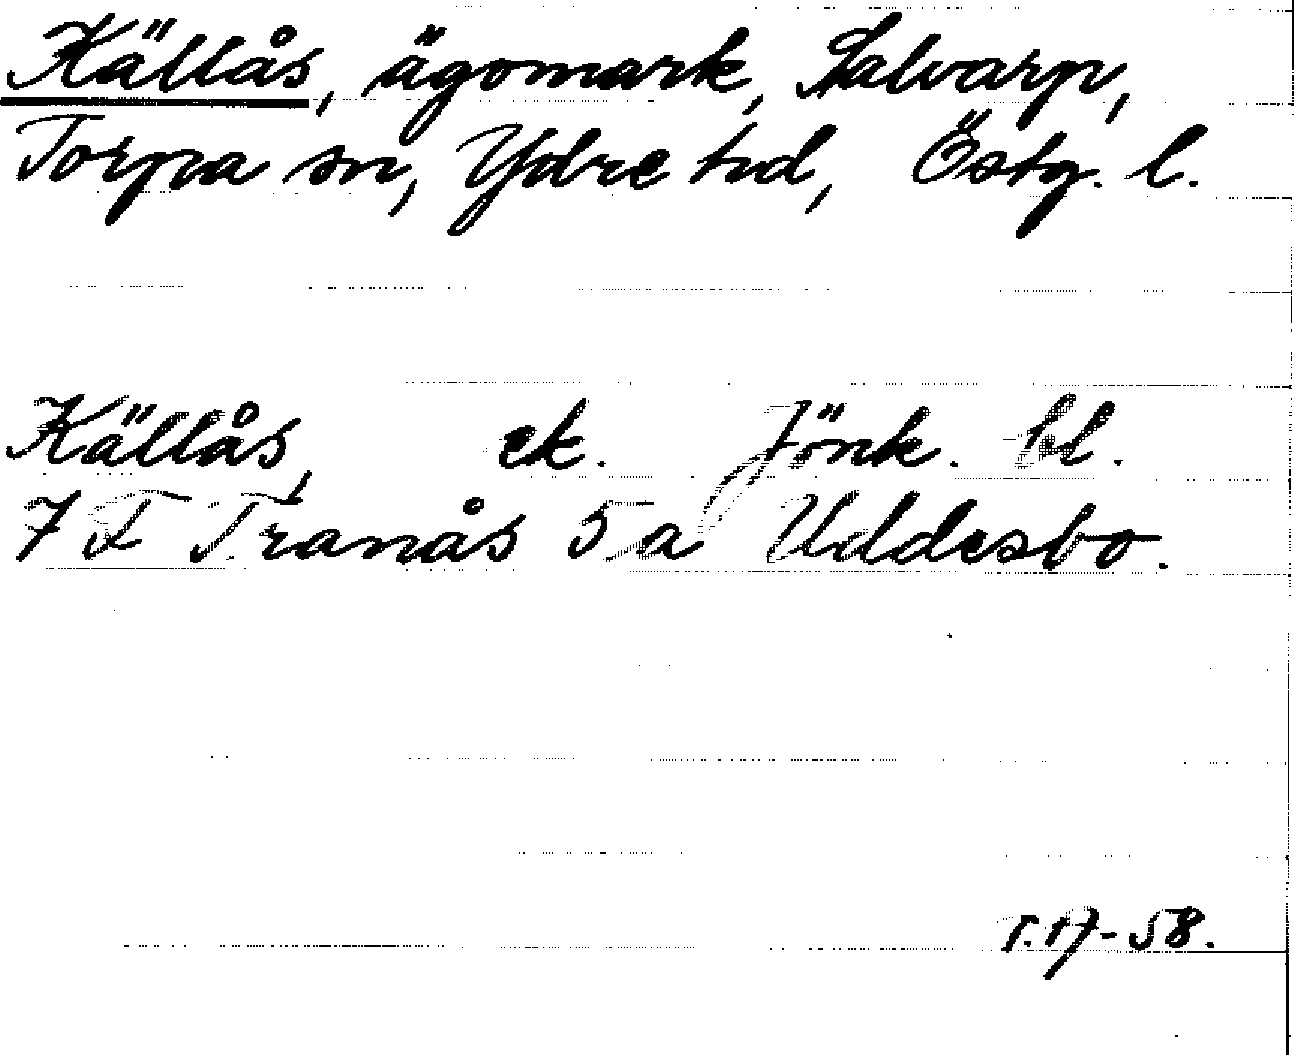 Källås, ägomark, Salvarp,
Torpa sn, Ydre hd, Östg. l.
Källås, ek. Jönk. bl.
7 F Tranås 5 a Uddesbo.
T.17-58.